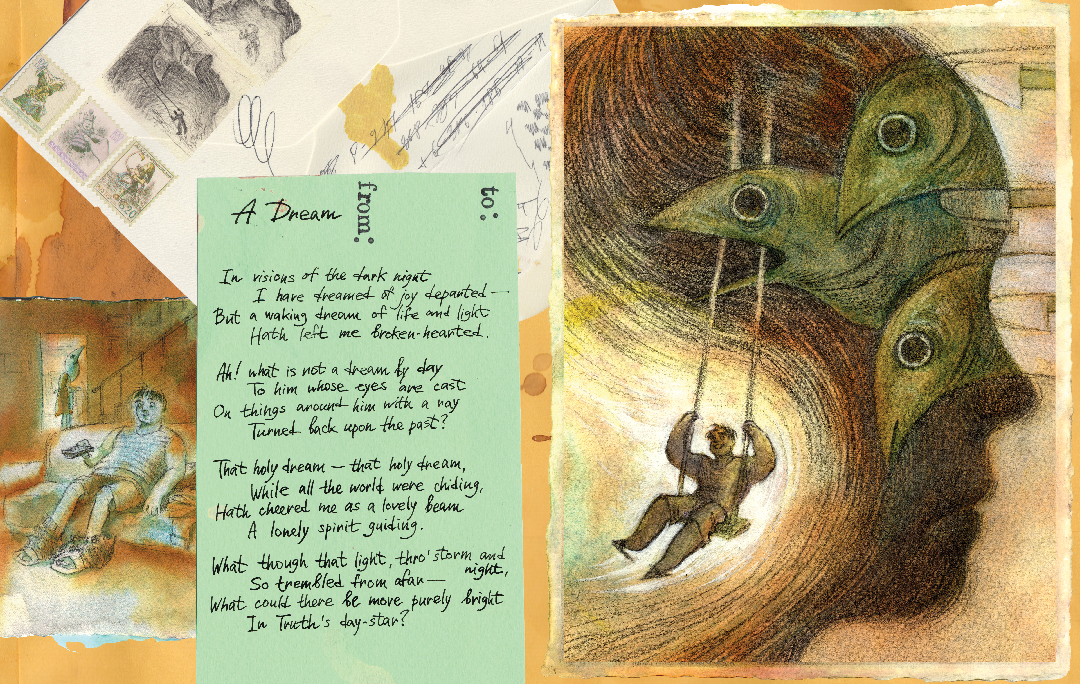 from:
to:
A Dream
In visions of the dark night
I have dreamed of joy departed—
But a waking dream of life and light
Hath left me broken-hearted.
Ah! what is not a dream by day
To him whose eyes are cast
On things around him with a ray
Turned back upon the past?
That holy dream — that holy dream,
While all the world were chiding,
Hath cheered me as a lovely beam
A lonely spirit guiding.
What though that light, thro' storm and
night,
So trembled from afar—
What could there be more purely bright
In Truth's day-star?